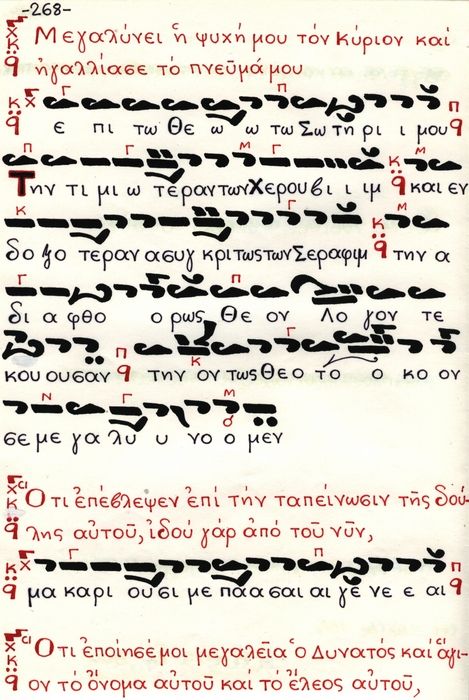 -268-
Μεγαλύνει ἡ ψυχή μου τόν Κύριον καί
ἠγαλλίασε τό πνεῦμά μου
ε πι τω Θε ω ω τω Σω τη ρι ι μου
Την τι μι ω τεραν των Χερου βι ι ιμ και εν
δο ξο τεραν ασυγ κριτως των Σεραφιμ την α
δι α φθο ο ρως Θε ον Λο γον τε
κου ουσαν την ον τως Θεο το ο κο ον
σε με γα λυ υ νο ο μεν
Ὅτι ἐπέβλεψεν ἐπί τήν ταπείνωσιν τῆς δού-
λης αὐτοῦ, ἰδού γάρ ἀπό τοῦ νῦν,
μα καρι ουσι με πα ασαι αι γε νε ε αι
Ὅτι ἐποίησέ μοι μεγαλεῖα ὁ Δυνατός καί ἅγι-
ον τό ὄνομα αὐτοῦ καί τό ἔλεος αὐτοῦ,